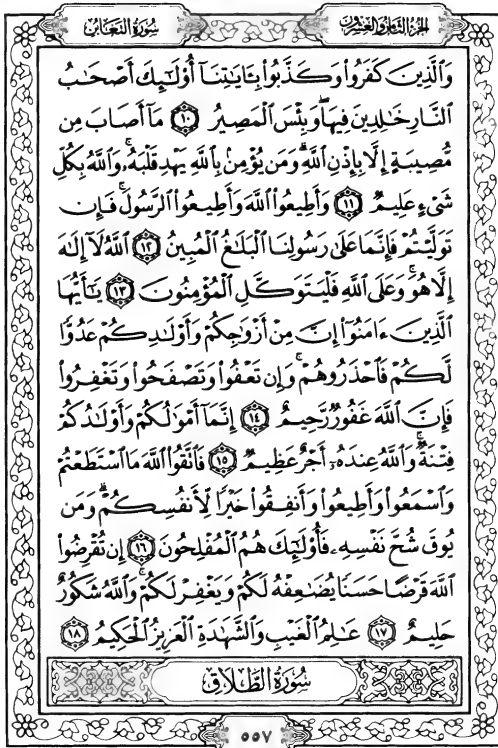 سُورَةُ التَّغَابُنِ
الجُزْءُ الثَّامِنُ وَالعِشْرُونَ
وَالَّذِينَ كَفَرُوا۟ وَكَذَّبُوا۟ بِـَٔايَٰتِنَآ أُو۟لَٰٓئِكَ أَصْحَٰبُ
النَّارِ خَٰلِدِينَ فِيهَا ۖ وَبِئْسَ الْمَصِيرُ ١٠ مَآ أَصَابَ مِن
مُّصِيبَةٍ إِلَّا بِإِذْنِ اللَّهِ ۗ وَمَن يُؤْمِنۢ بِاللَّهِ يَهْدِ قَلْبَهُۥ ۚ وَاللَّهُ بِكُلِّ
شَىْءٍ عَلِيمٌ ١١ وَأَطِيعُوا۟ اللَّهَ وَأَطِيعُوا۟ الرَّسُولَ ۚ فَإِن
تَوَلَّيْتُمْ فَإِنَّمَا عَلَىٰ رَسُولِنَا الْبَلَٰغُ الْمُبِينُ ١٢ اللَّهُ لَآ إِلَٰهَ
إِلَّا هُوَ ۚ وَعَلَى اللَّهِ فَلْيَتَوَكَّلِ الْمُؤْمِنُونَ ١٣ يَٰٓأَيُّهَا
الَّذِينَ ءَامَنُوٓا۟ إِنَّ مِنْ أَزْوَٰجِكُمْ وَأَوْلَٰدِكُمْ عَدُوًّا
لَّكُمْ فَاحْذَرُوهُمْ ۚ وَإِن تَعْفُوا۟ وَتَصْفَحُوا۟ وَتَغْفِرُوا۟
فَإِنَّ اللَّهَ غَفُورٌ رَّحِيمٌ ١٤ إِنَّمَآ أَمْوَٰلُكُمْ وَأَوْلَٰدُكُمْ
فِتْنَةٌ ۚ وَاللَّهُ عِندَهُۥٓ أَجْرٌ عَظِيمٌ ١٥ فَاتَّقُوا۟ اللَّهَ مَا اسْتَطَعْتُمْ
وَاسْمَعُوا۟ وَأَطِيعُوا۟ وَأَنفِقُوا۟ خَيْرًا لِّأَنفُسِكُمْ ۗ وَمَن
يُوقَ شُحَّ نَفْسِهِۦ فَأُو۟لَٰٓئِكَ هُمُ الْمُفْلِحُونَ ١٦ إِن تُقْرِضُوا۟
اللَّهَ قَرْضًا حَسَنًا يُضَٰعِفْهُ لَكُمْ وَيَغْفِرْ لَكُمْ ۚ وَاللَّهُ شَكُورٌ
حَلِيمٌ ١٧ عَٰلِمُ الْغَيْبِ وَالشَّهَٰدَةِ الْعَزِيزُ الْحَكِيمُ ١٨
سُورَةُ الطَّلَاقِ
٥٥٧